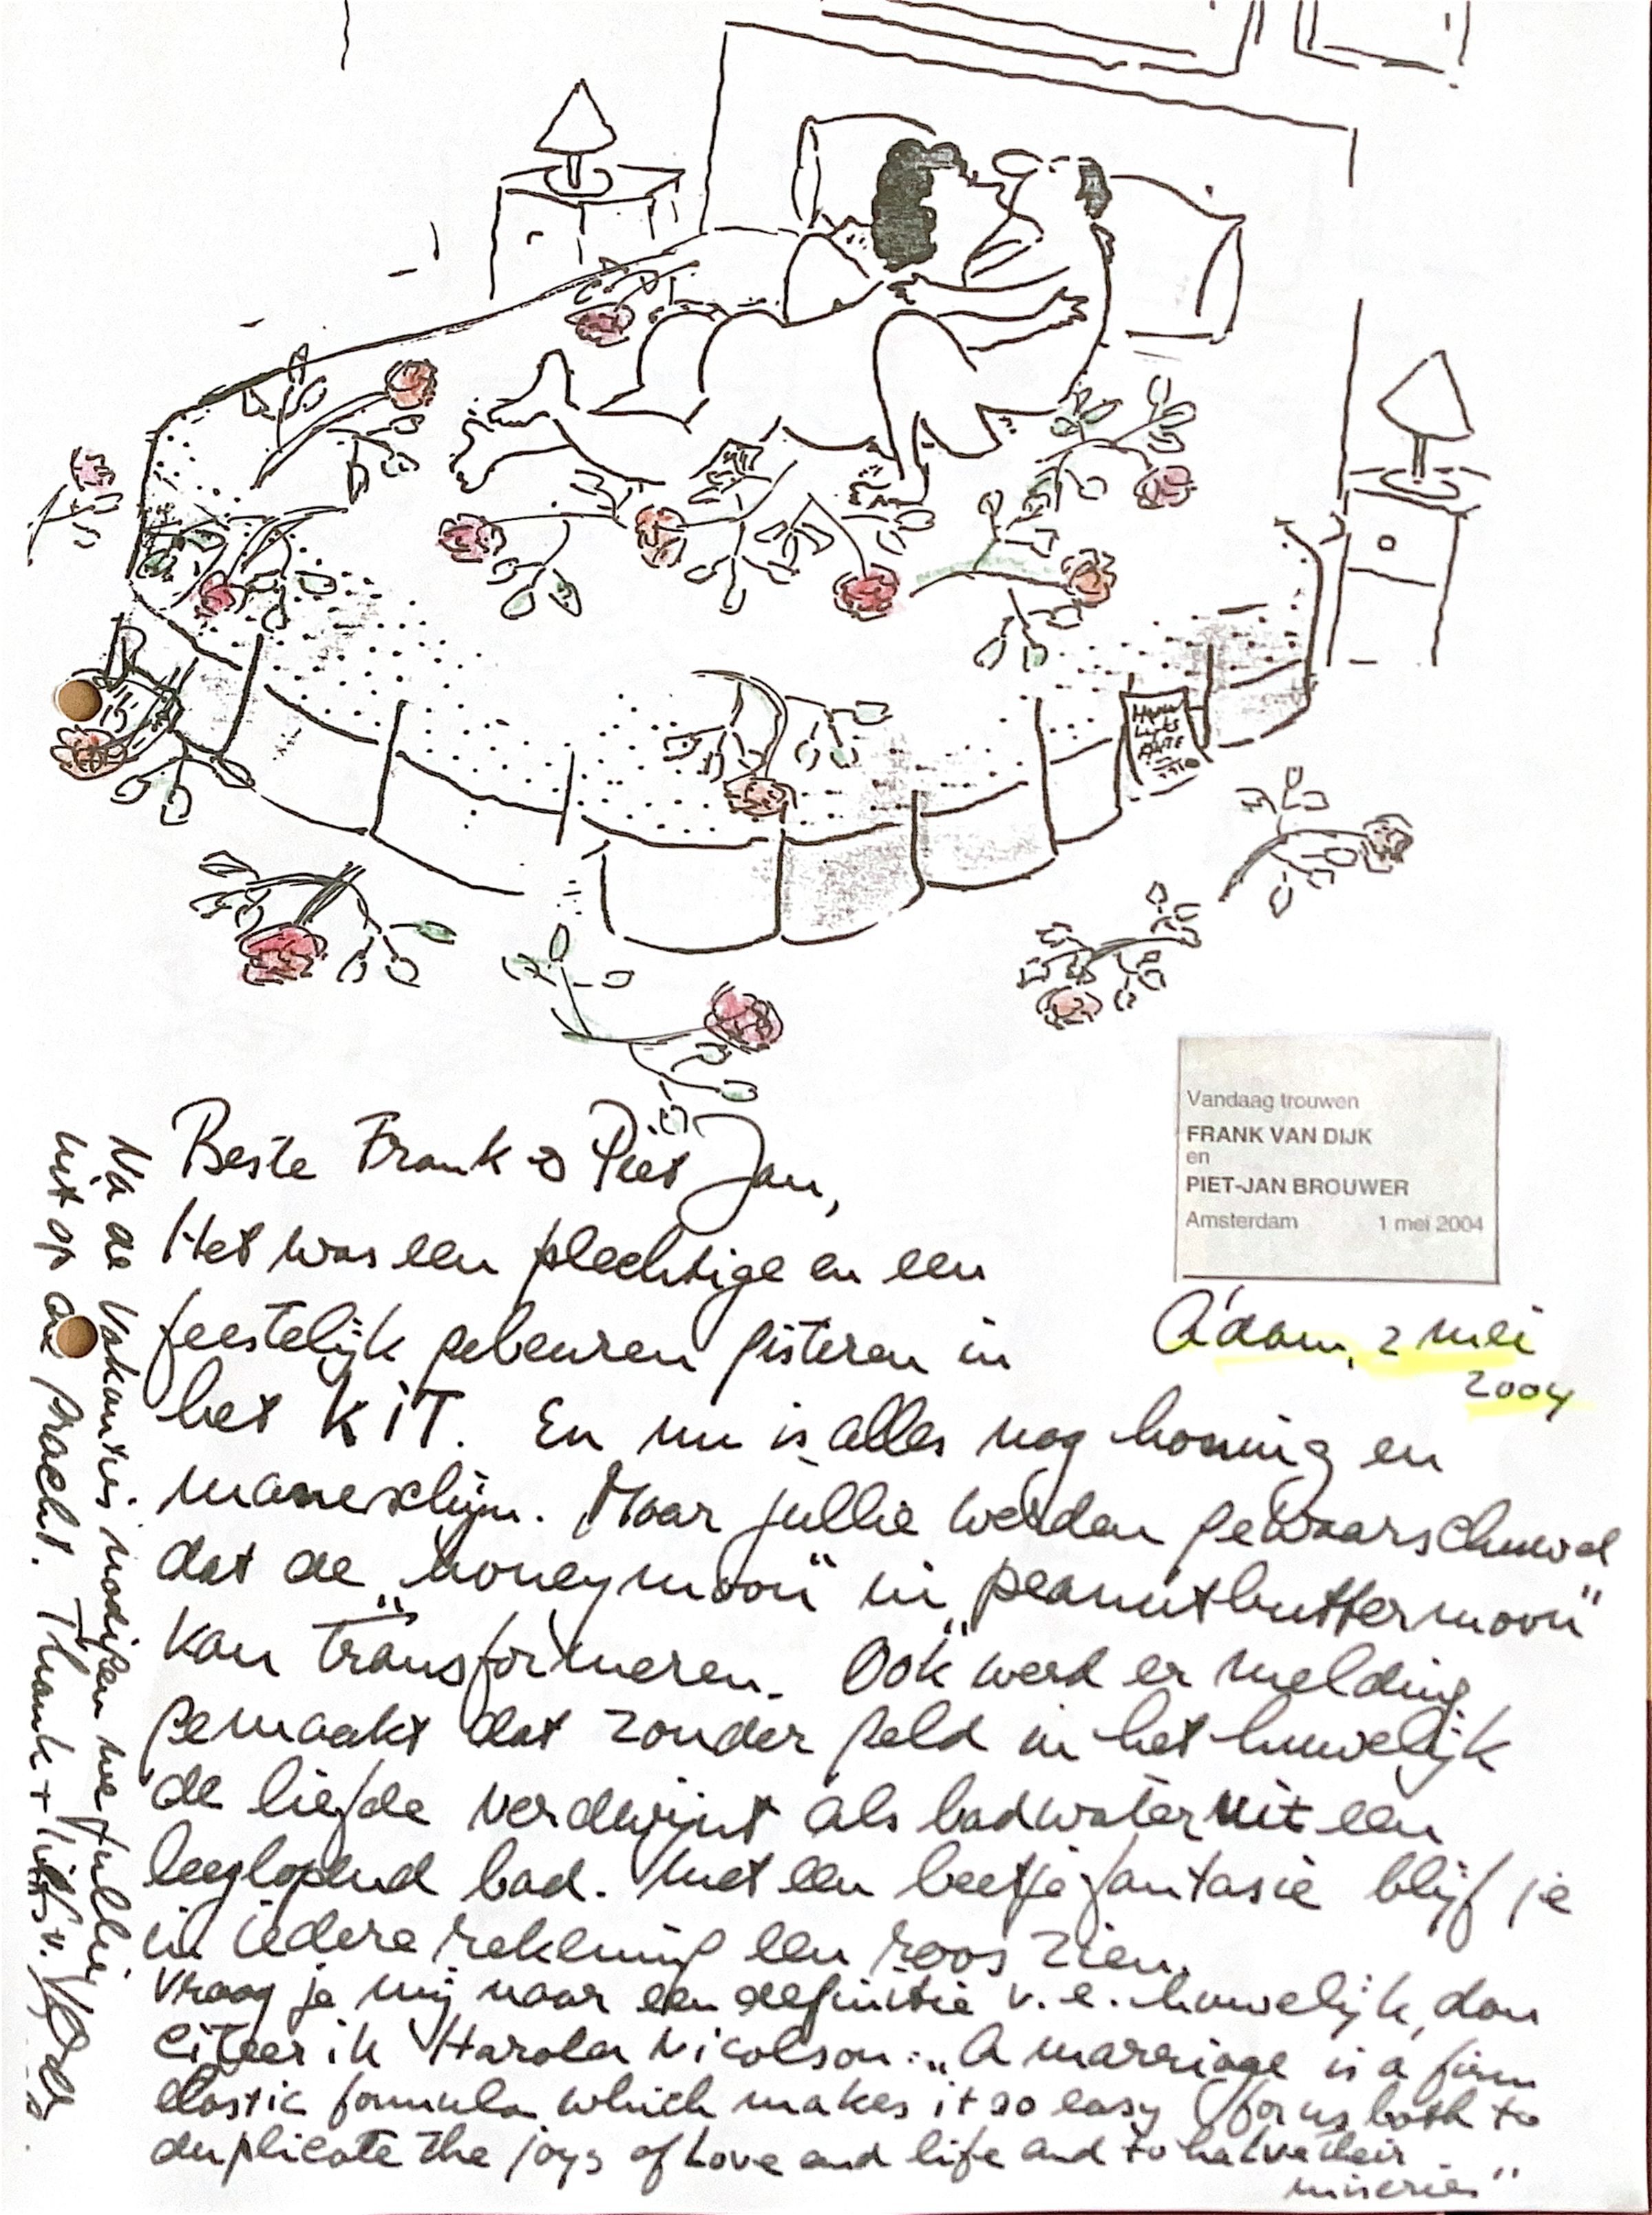 Vandaag trouwen
FRANK VAN DIJK
en
PIET-JAN BROUWER
Amsterdam 1 mei 2004
A'dam, 2 mei
2004
Beste Frank & Piet Jan,
Het was een plechtige en een
feestelijk gebeuren gisteren in
het KiT. En nu is alles nog honing en
maneschijn. Maar jullie werden gewaarschuwd
dat de „honeymoon" in „peanutbuttermoon"
kan transformeren. Ook werd er melding
gemaakt dat zonder geld in het huwelijk
de liefde verdwijnt als badwater uit een
leeglopend bad. Met een beetje fantasie blijf je
in iedere rekening een roos zien.
Vraag je mij naar een definitie v.e. huwelijk, dan
citeer ik Harold Nicolson: „A marriage is a firm
elastic formula which makes it so easy for us both to
duplicate the joys of Love and life and to halve their
miseries"
Na de vakanties nodigen we jullie
uit op de gracht. Thank + liefs v.